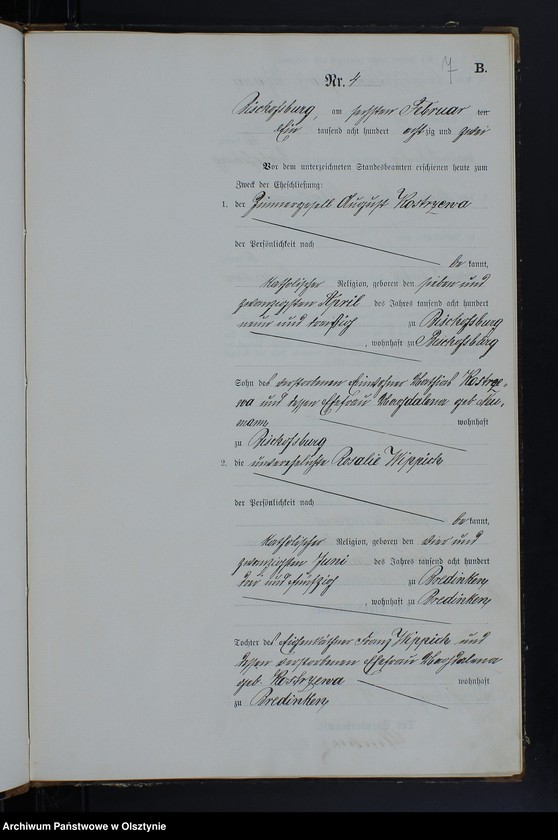 7 B.
Nr. 4
Bischofsburg, am sechsten Februar
Ein tausend acht hundert achtzig und zwei
Vor dem unterzeichneten Standesbeamten erschienen heute zum
Zweck der Eheschließung:
1. der Zimmergesell August Kostrzewa
der Persönlichkeit nach
be kannt,
katholischer Religion, geboren den sieben und
zwanzigsten April des Jahres tausend acht hundert
neun und zu Bischofsburg
, wohnhaft zu Bischofsburg
Sohn des verstorbenen Einwohner Mathias Kostrze-
wa und dessen Ehefrau Magdalena geb.
wohnhaft
zu Bischofsburg
2. die unverehelichte Rosalie Wippich
der Persönlichkeit nach
be kannt,
katholischer Religion, geboren den vier und
zwanzigsten Juni des Jahres tausend acht hundert
drei und fünfzig zu Bredinken
, wohnhaft zu Bredinken
Tochter des Eigenkäthner Franz Wippich und
dessen verstorbenen Ehefrau Magdalena
geb. Kostrzewa wohnhaft
zu Bredinken
Archiwum Państwowe w Olsztynie